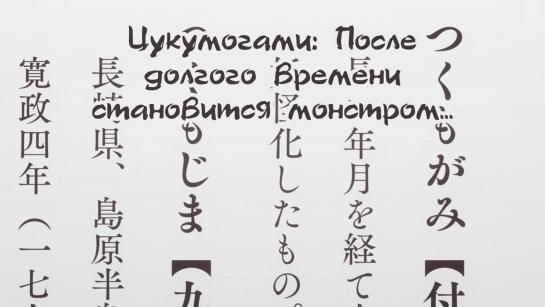 Цукумогами: После
долгого времени
становится монстром...
つくもがみ【付
年月を経て
怪化したもの。
もじま【九
長崎県、島原半
寛政四年（一七